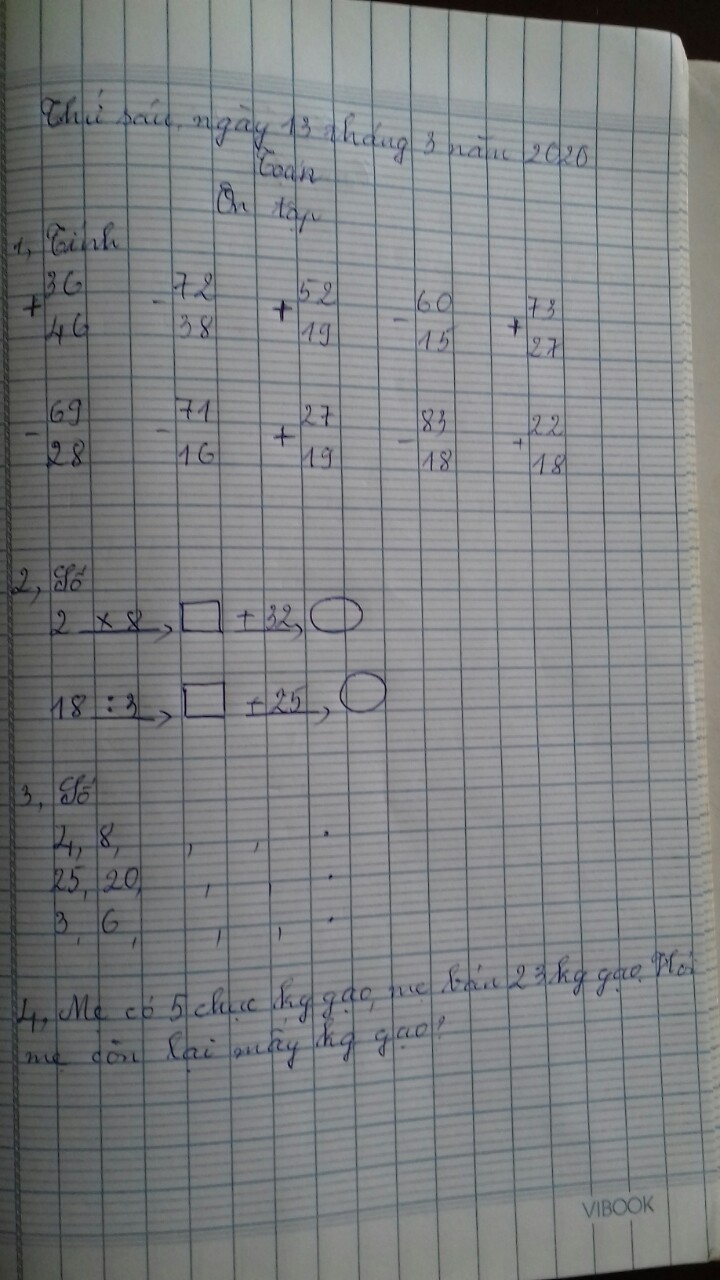 Thứ sáu, ngày 13 tháng 3 năm 2020
Toán
Ôn tập
1, Tính
+ 36 - 72 + 52 - 60 + 73
46 38 19 15 27
- 69 - 71 + 27 - 83 + 22
28 16 19 18 18
2, Số
2 × 8 + 32
18 : 3 + 25
3, Số
4, 8, , , .
25, 20, , , .
3, 6, , , .
4, Mẹ có 5 chục kg gạo, mẹ bán 23 kg gạo. Hỏi
mẹ còn lại mấy kg gạo?
VIBOOK